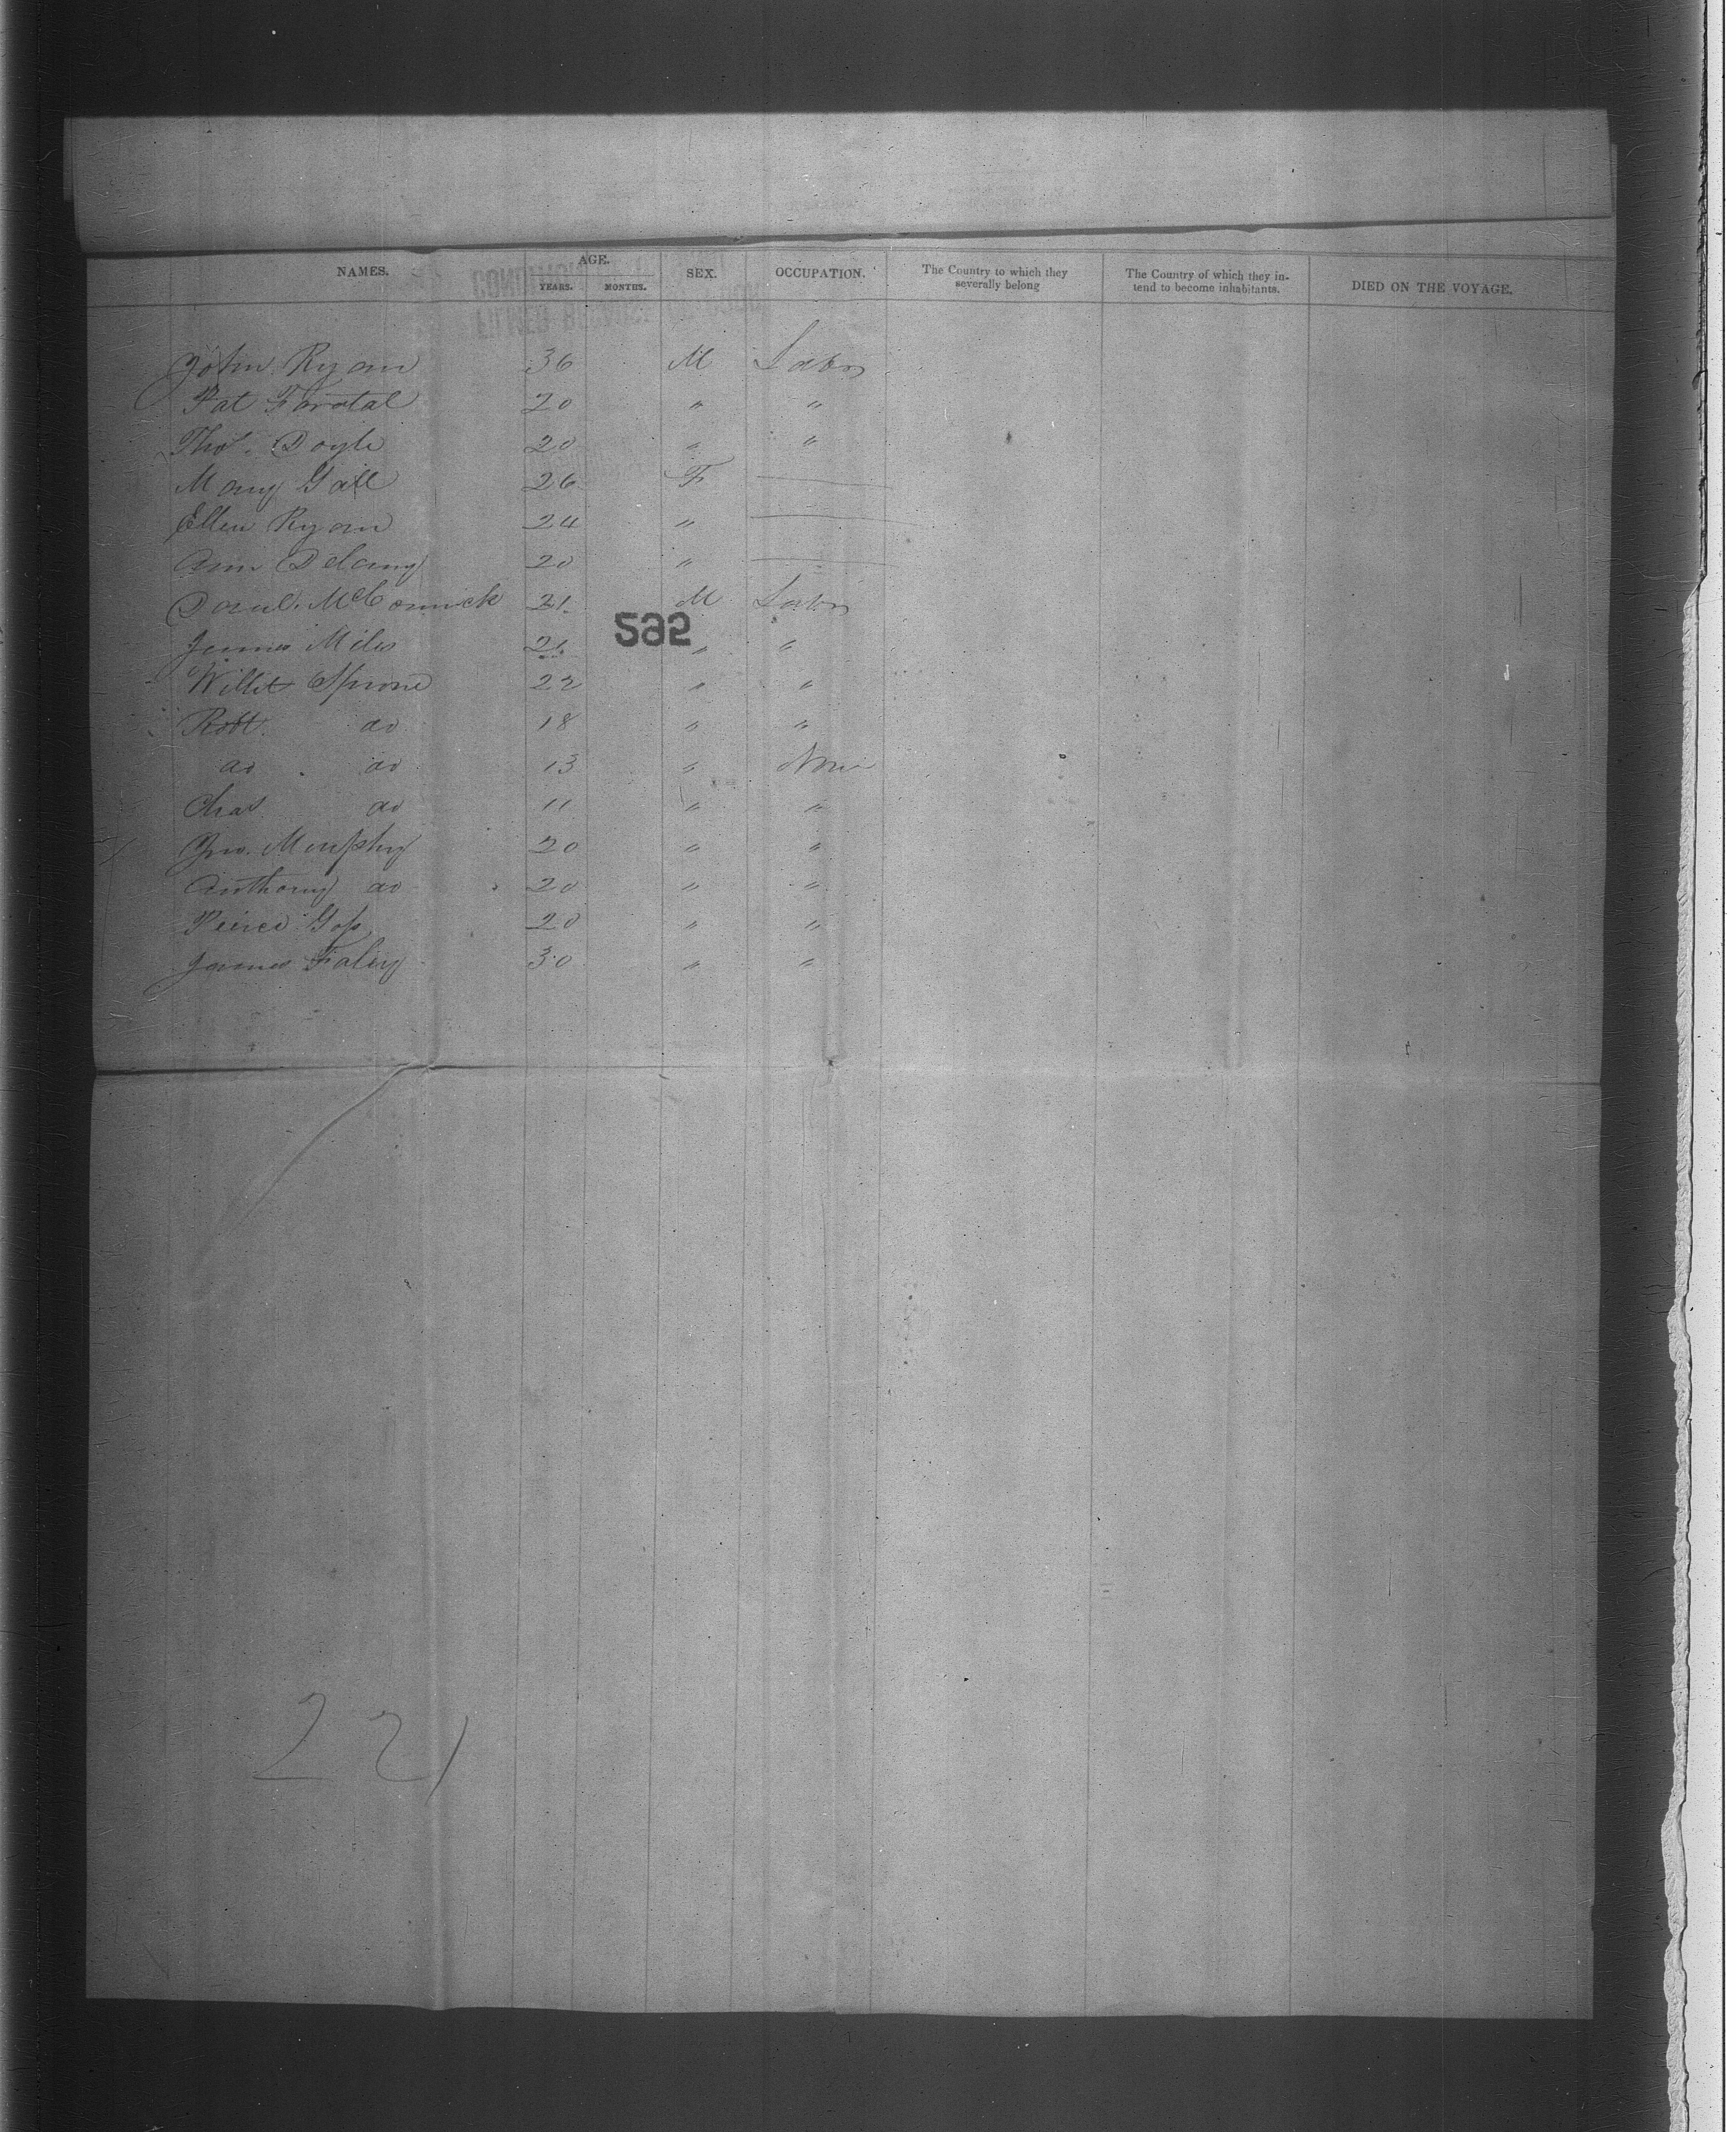 NAMES. AGE. SEX. OCCUPATION. The Country to which they severally belong The Country of which they in- tend to become inhabitants. DIED ON THE VOYAGE.
YEARS. MONTHS.
John Ryan 36 M Labor
Pat 20 " "
Thos. Doyle 20 " "
Mary Gall 26 F
Ellen Ryan 24 "
Ann Delany 20 "
Danl. McCormick 21 M Labor
592
James Miles 21 " "
22 " "
Robt. do 18 " "
do do 13 " None
Chas do 11 " "
Jno. Murphy 20 " "
Anthony do 20 " "
Peirce Goss 20 " "
James Faley 30 " "
221